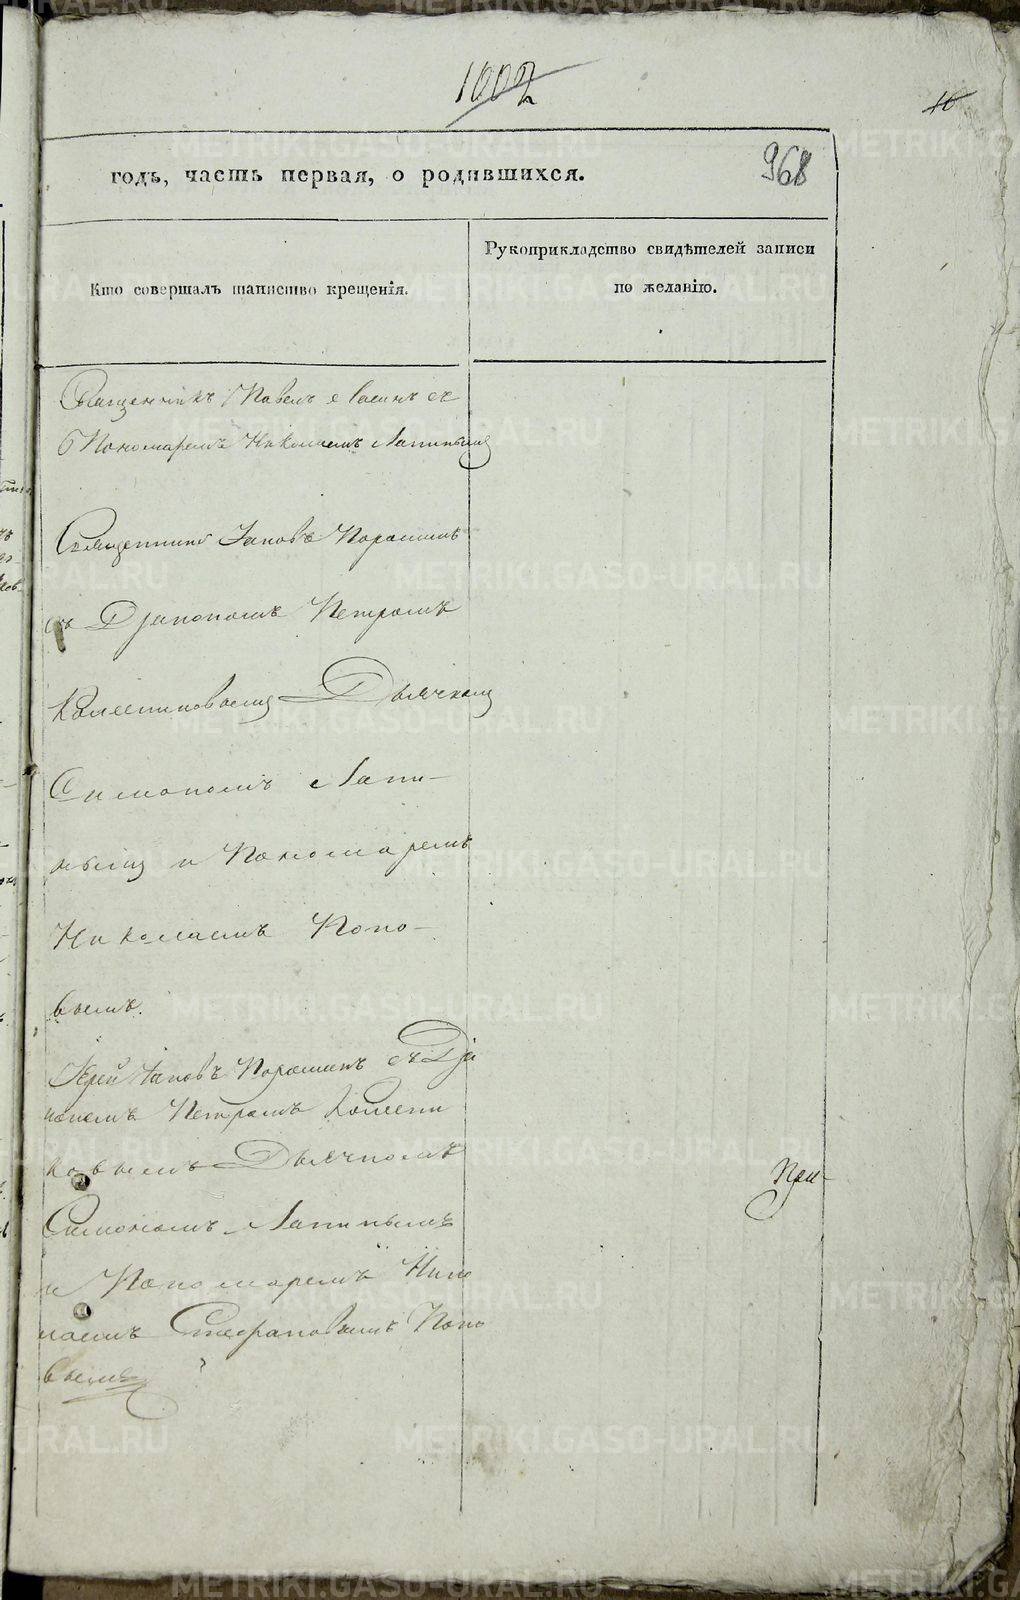 1002
10
968
годъ, часть первая, о родившихся.
Кто совершалъ таинство крещенія.
Рукоприкладство свидѣтелей записи
по желанію.
Священникъ Павелъ съ
Пономаремъ Николаемъ Лапинымъ
Священникъ Іаковъ Порошинъ
съ Діакономъ Петромъ
Дьячкомъ
Симономъ Лапи-
нымъ и Пономаремъ
Николаемъ Попо-
вымъ.
Іерей Іаковъ Порошинъ съ Діа
кономъ Петромъ
Дьячкомъ
Симономъ Лапинымъ
и Пономаремъ Нико
лаемъ Стефановымъ Попо
вымъ
При-
METRIKI.GASO-URAL.RU